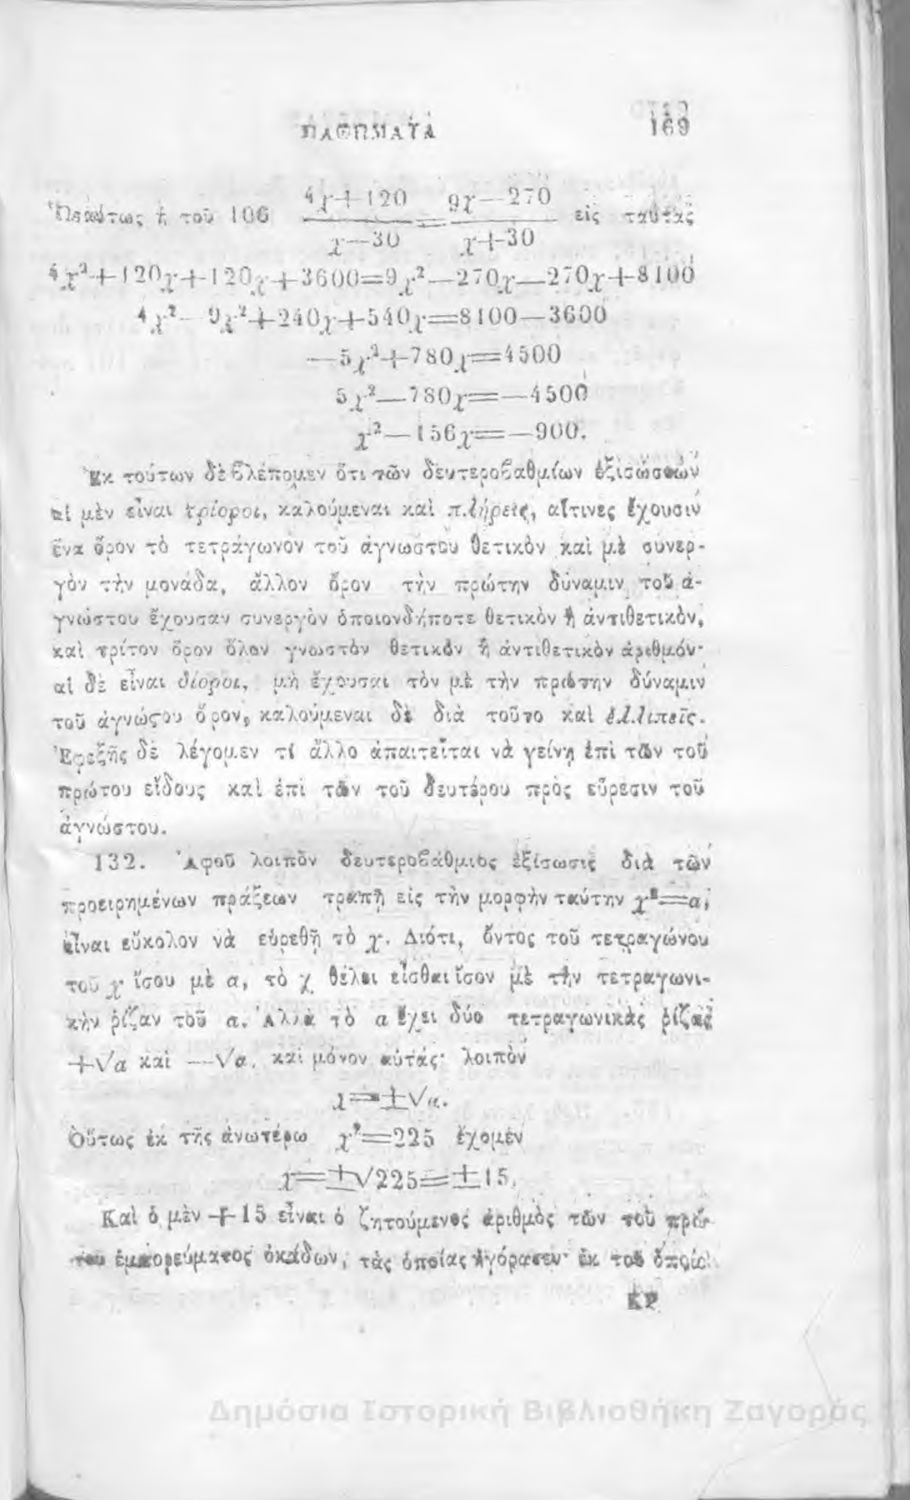 ΠΑΘΗΜΑΤΑ 169
Ὡσαύτως ἡ τοῦ 106 4χ+120/χ—30 = 9χ—270/χ+30 εἰς ταύτας
4χ²+120χ+120χ+3600=9χ²—270χ—270χ+8100
4χ²—9χ²+240χ+540χ=8100—3600
—5χ²+780χ=4500
5χ²—780χ=—4500
χ²—156χ=—900.
Ἐκ τούτων δὲ βλέπομεν ὅτι τῶν δευτεροβαθμίων ἐξισώσεων
αἱ μὲν εἶναι τρίοροι, καλούμεναι καὶ πλήρεις, αἵτινες ἔχουσιν
ἕνα ὅρον τὸ τετράγωνον τοῦ ἀγνώστου θετικὸν καὶ μὲ συνερ-
γὸν τὴν μονάδα, ἄλλον ὅρον τὴν πρώτην δύναμιν τοῦ ἀ-
γνώστου ἔχουσαν συνεργὸν ὁποιονδήποτε θετικὸν ἢ ἀντιθετικὸν,
καὶ τρίτον ὅρον ὅλον γνωστὸν θετικὸν ἢ ἀντιθετικὸν ἀριθμόν·
αἱ δὲ εἶναι δίοροι, μὴ ἔχουσαι τὸν μὲ τὴν πρώτην δύναμιν
τοῦ ἀγνώϛου ὅρον, καλούμεναι δὲ διὰ τοῦτο καὶ ἐλλιπεῖς.
Ἐφεξῆς δὲ λέγομεν τί ἄλλο ἀπαιτεῖται νὰ γείνῃ ἐπὶ τῶν τοῦ
πρώτου εἴδους καὶ ἐπὶ τῶν τοῦ δευτέρου πρὸς εὕρεσιν τοῦ
ἀγνώστου.
132. Ἀφοῦ λοιπὸν δευτεροβάθμιος ἐξίσωσις διὰ τῶν
προειρημένων πράξεων τραπῇ εἰς τὴν μορφὴν ταύτην χ²=α,
εἶναι εὔκολον νὰ εὑρεθῇ τὸ χ. Διότι, ὄντος τοῦ τετραγώνου
τοῦ χ ἴσου μὲ α, τὸ χ θέλει εἶσθαι ἴσον μὲ τὴν τετραγωνι-
κὴν ῥίζαν τοῦ α. Ἀλλὰ τὸ α ἔχει δύο τετραγωνικὰς ῥίζας
+√α καὶ —√α, καὶ μόνον αὐτάς· λοιπὸν
χ=±√α.
Οὕτως ἐκ τῆς ἀνωτέρω χ²=225 ἔχομεν
χ=±√225=±15.
Καὶ ὁ μὲν +15 εἶναι ὁ ζητούμενος ἀριθμὸς τῶν τοῦ πρώ-
του ἐμπορεύματος ὀκάδων, τὰς ὁποίας ἠγόρασεν· ἐκ τοῦ ὁποίου
ΚΡ
Δημόσια Ιστορική Βιβλιοθήκη Ζαγοράς